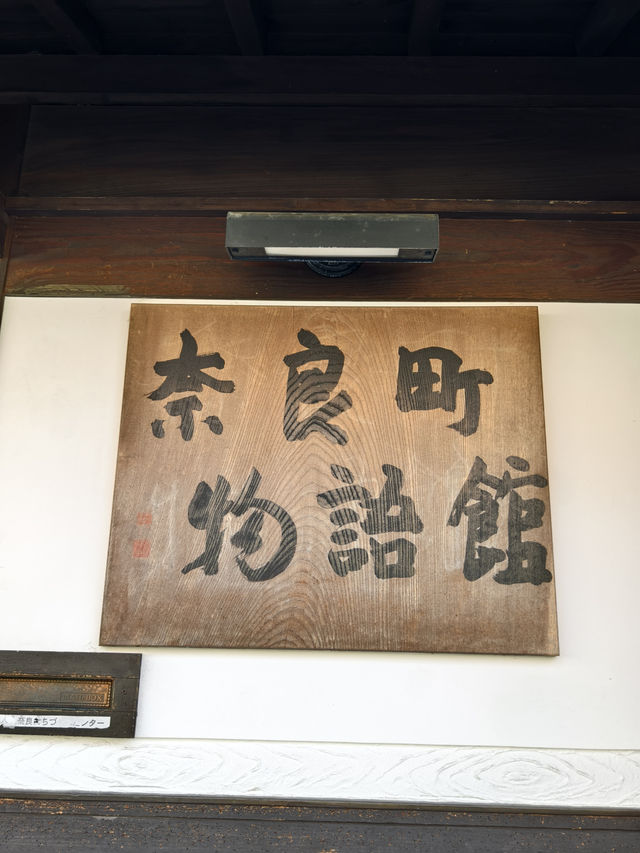 奈良町
物語館
MAIL BOX
奈良まちづ
ンター